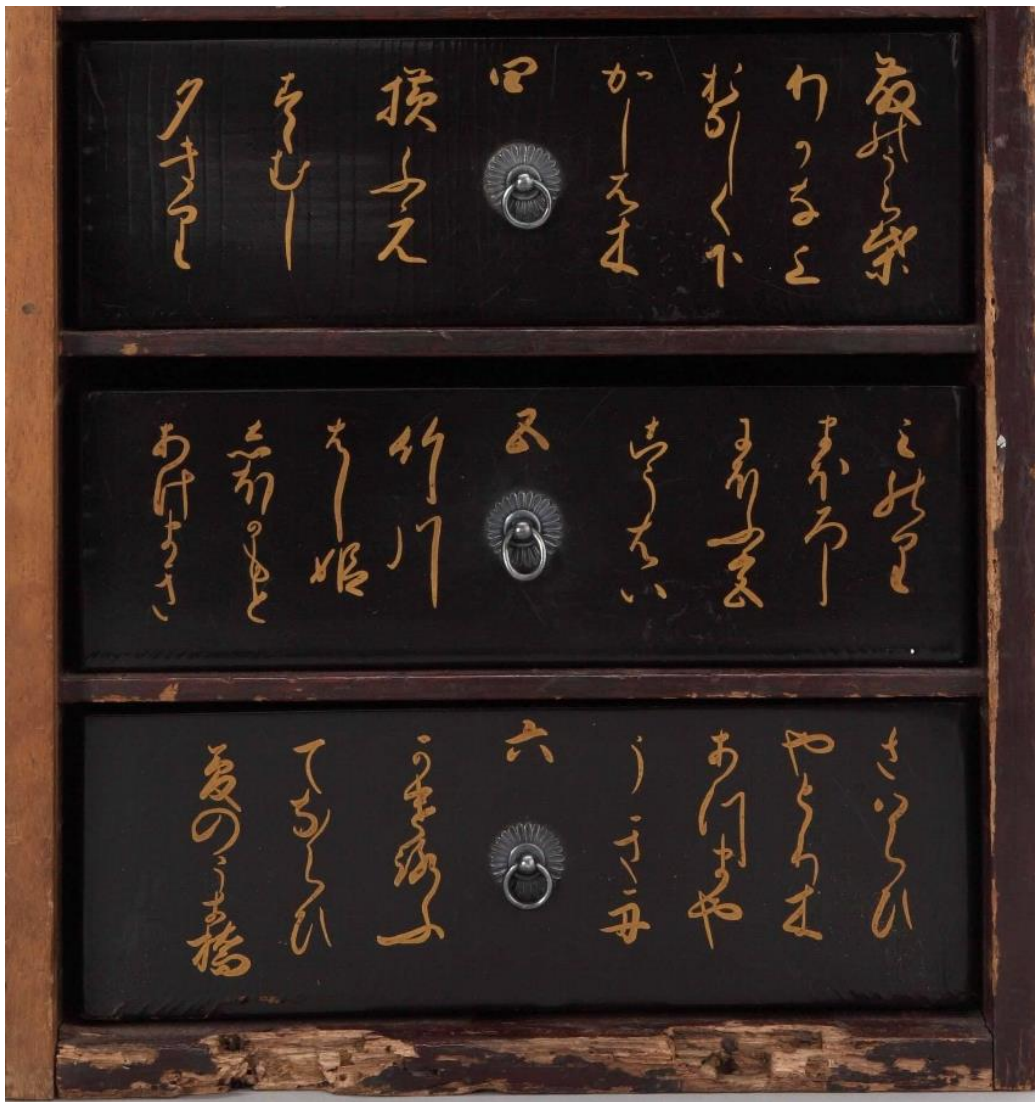 藤のうら葉
わかな上
おなしく下
かしは木
四
横ふえ
すゝむし
夕きり
みのり
まほろし
にほふ宮
こうはい
五
竹川
はし姫
しゐかもと
あけまき
さわらひ
やとり木
あつまや
うき舟
六
かけろふ
てならひ
夢のうき橋